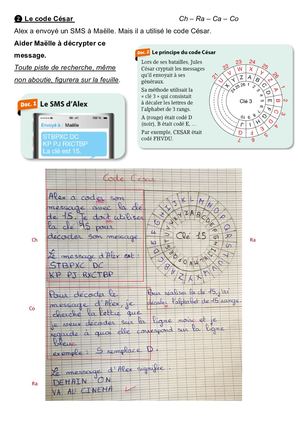 2 Le code César
Ch – Ra – Ca – Co
Alex a envoyé un SMS à Maëlle. Mais il a utilisé le code César.
Aider Maëlle à décrypter ce
message.
Toute piste de recherche, même
non aboutie, figurera sur la feuille.
Doc. 1 Le SMS d'Alex
Envoyé à : Maëlle
STBPXC DC
KP PJ RXCTBP
La clé est 15.
Doc. 2 Le principe du code César
Lors de ses batailles, Jules
César cryptait les messages
qu'il envoyait à ses
généraux.
Sa méthode utilisait la
« clé 3 » qui consistait
à décaler les lettres de
l'alphabet de 3 rangs.
A (rouge) était codé D
(noir), B était codé E, ...
Par exemple, CESAR était
codé FHVDU.
Clé 3
Code César
Alex a codés son
message avec la clé
de 15, je doit utiliser
la clé 15 pour
décoder son message
Le message d'Alex est
STBPXC DC
KP PJ RXCTBP
Clé 15
Ch
Ra
Pour décoder le
message d'Alex, je
cherche la lettre que
je veux décoder sur la ligne noire et je
regarde à quoi elle correspond sur la ligne
bleue
exemple : S remplace D.
Pour réaliser la clé 15, j'ai
décalé l'alphabet de 15 rangs.
Co
Le message d'Alex signifie
DEMAIN ON
VA AU CINEMA
Ra